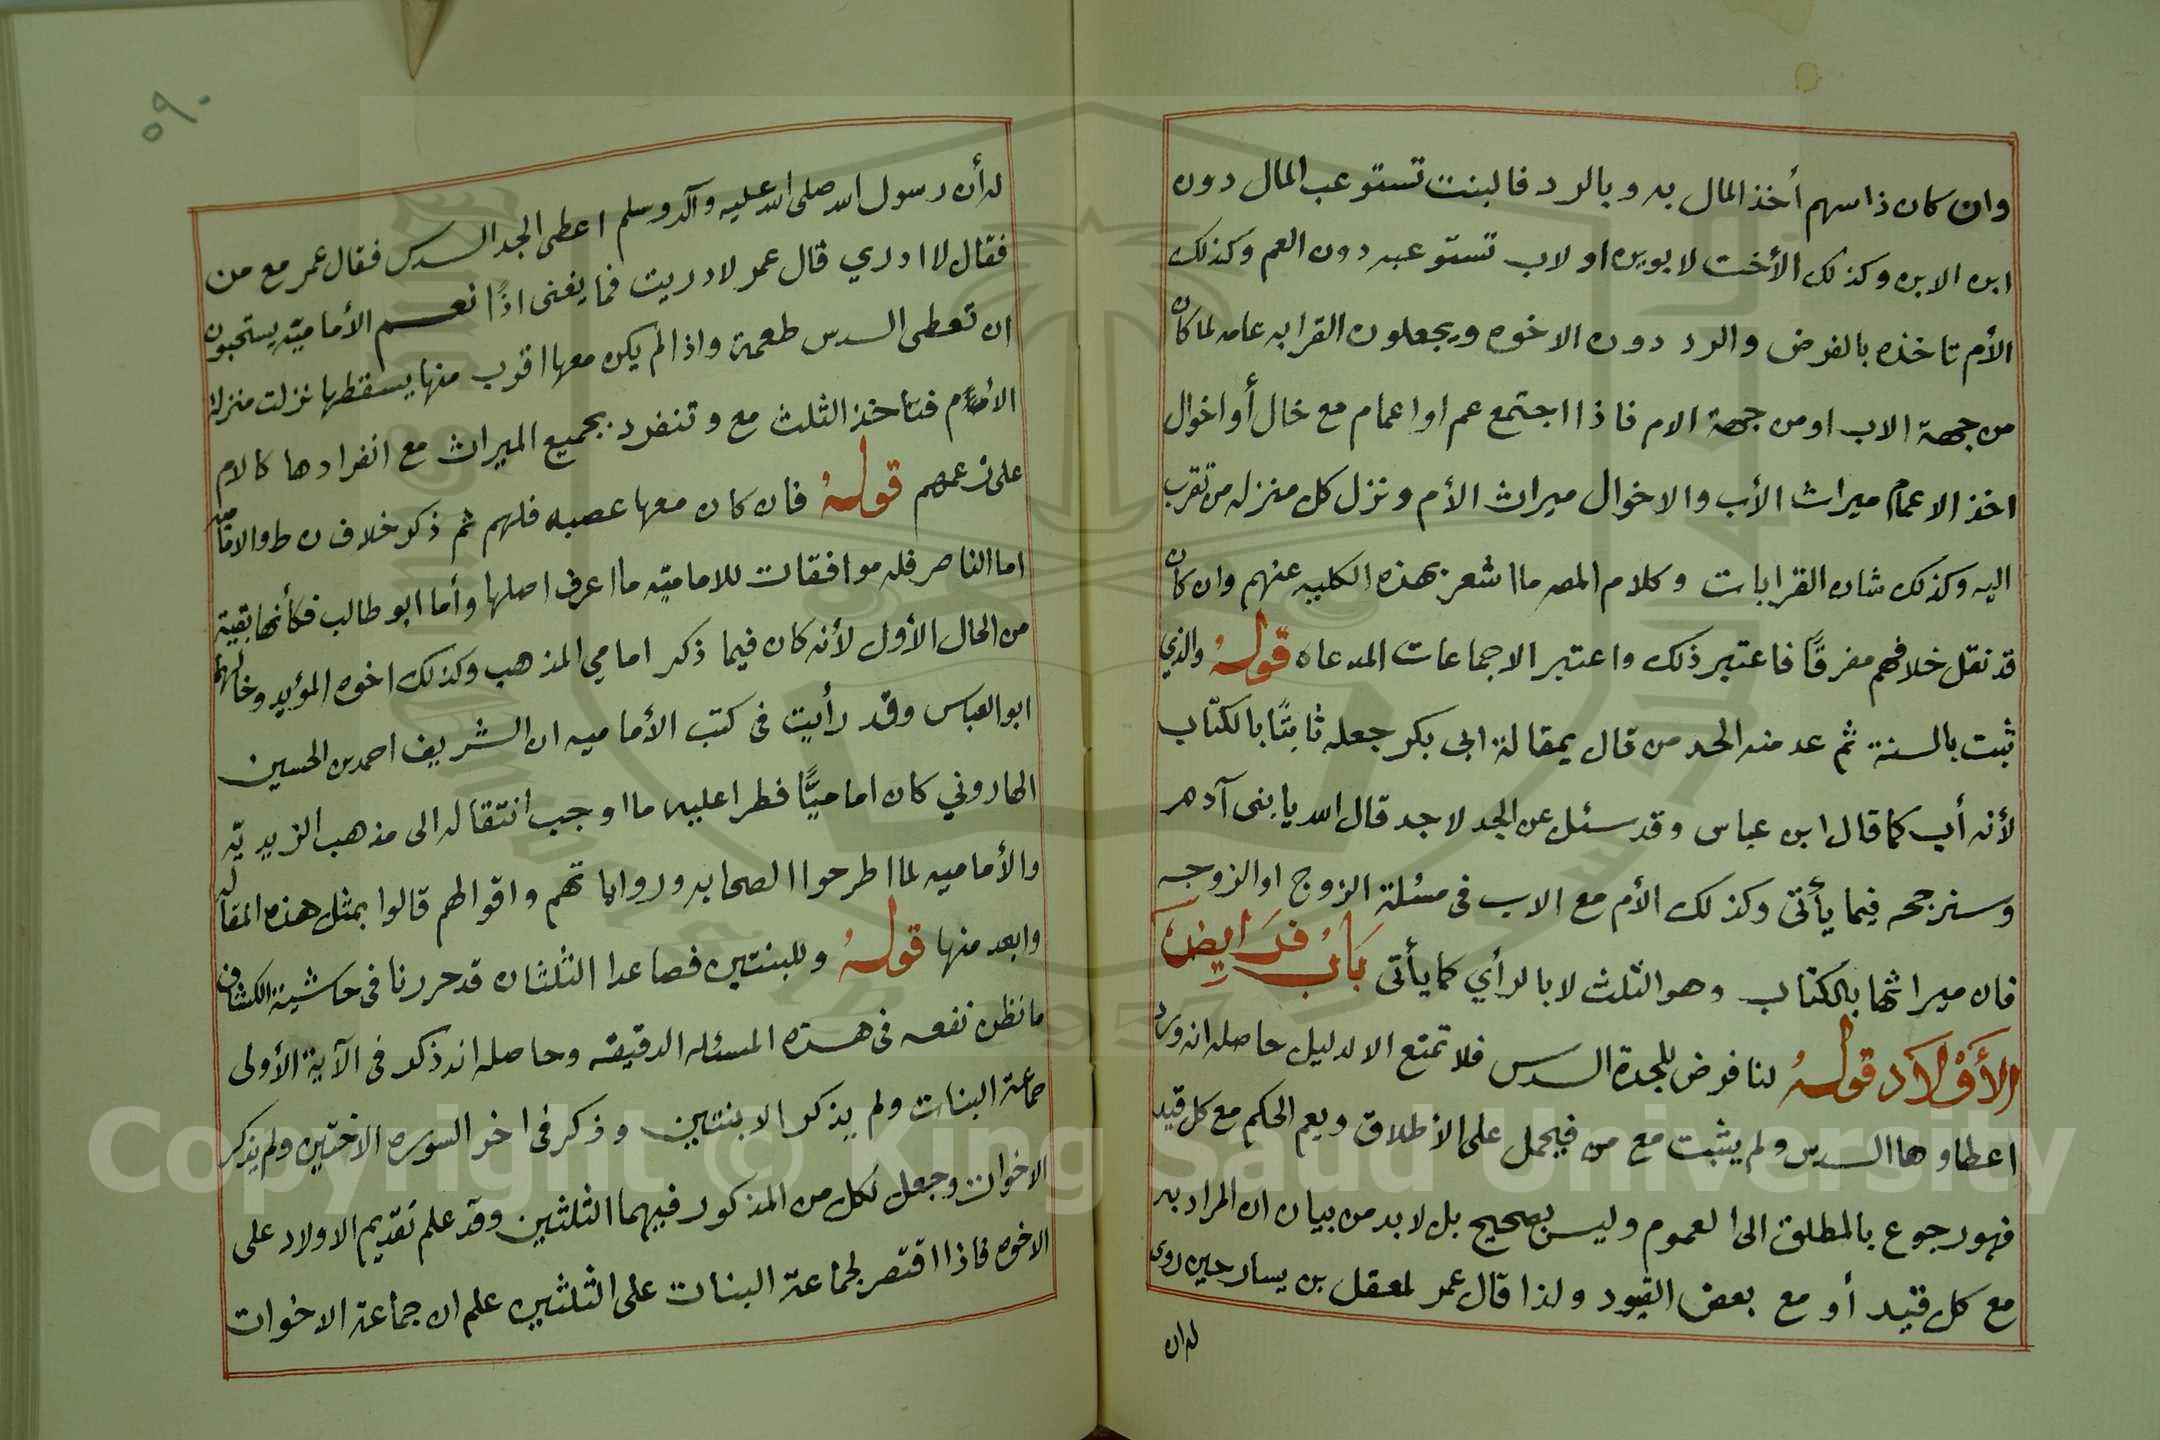 وان كان ذا سهم أخذ المال به وبالرد فالبنت تستوعب المال دون
ابن الابن وكذلك الأخت لابوين او لاب تستوعبه دون العم وكذلك
الأم تاخذه بالفرض والرد دون الاخوه ويجعلون القرابه عامه لما كان
من جهة الاب او من جهة الام فاذا اجتمع عم او اعمام مع خال أو اخوال
اخذ الاعمام ميراث الأب والاخوال ميراث الأم ونزل كل منزله من تقرب
اليه وكذلك شان القرابات وكلام المصـ ما اشعر بهذه الكليه عنهم وان كان
قد نقل خلافهم مفرقًا فاعتبر ذلك واعتبر الاجماعات المدعاه قوله والذي
ثبت بالسنة ثم عد منه الجد من قال بمقالة ابى بكر جعله ثابتًا بالكتاب
لأنه أب كما قال ابن عباس وقد سئل عن الجد لا جد قال الله يا بنى آدم
وسنرجحه فيما يأتى وكذلك الأم مع الاب فى مسئلة الزوج او الزوجه
فان ميراثها بالكتاب وهو الثلث لا بالرأي كما يأتى بَابُ فَرَايِضَ
الأَوْلاَد قولهُ لنا فرض للجدة السدس فلا تمتع الا لدليل حاصله انه ورد
اعطاوها السدس ولم يثبت مع من فيحمل على الأطلاق ويعم الحكم مع كل قيد
فهو رجوع بالمطلق الى العموم وليس بصحيح بل لا بد من بيان ان المراد به
مع كل قيد أو مع بعض القيود ولذا قال عمر لمعقل بن يسار حين روى
له ان
٥٩٠
له أن رسول الله صلى الله عليه وآله وسلم اعطى الجد السدس فقال عمر مع من
فقال لا ادري قال عمر لا دريت فما يغنى اذًا نعم الأماميّة يستحبون
ان تعطى السدس طعمة واذا لم يكن معها اقرب منها يسقطها نزلت منزلة
الأم فتاخذ الثلث مع وتنفرد بجميع الميراث مع انفرادها كالام
على زعمهم قوله فان كان معها عصبه فلهم ثم ذكر خلاف ن ط والاماميه
اما الناصر فله موافقات للاماميّه ما اعرف اصلها وأما ابو طالب فكأنها بقية
من الحال الأول لأنه كان فيما ذكر امامي المذهب وكذلك اخوه المؤيد وخالهما
ابو العباس وقد رأيت فى كتب الأماميه ان الشريف احمد بن الحسين
الهاروني كان اماميًّا فطرا عليه ما اوجب انتقاله الى مذهب الزيديّه
والأماميه لما اطرحوا الصحابه ورواياتهم واقوالهم قالوا بمثل هذه المقاله
وابعد منها قوله وللبنتين فصاعدا الثلثان قد حررنا فى حاشية الكشاف
ما نظن نفعه فى هذه المسئله الدقيقه وحاصله انه ذكر فى الآية الأولى
جماعة البنات ولم يذكر الابنتين وذكر فى اخر السوره الاختين ولم يذكر
الاخوات وجعل لكل من المذكور فيهما الثلثين وقد علم تقديم الاولاد على
الاخوه فاذا اقتصر لجماعة البنات على الثلثين علم ان جماعة الاخوات
Copyright © King Saud University